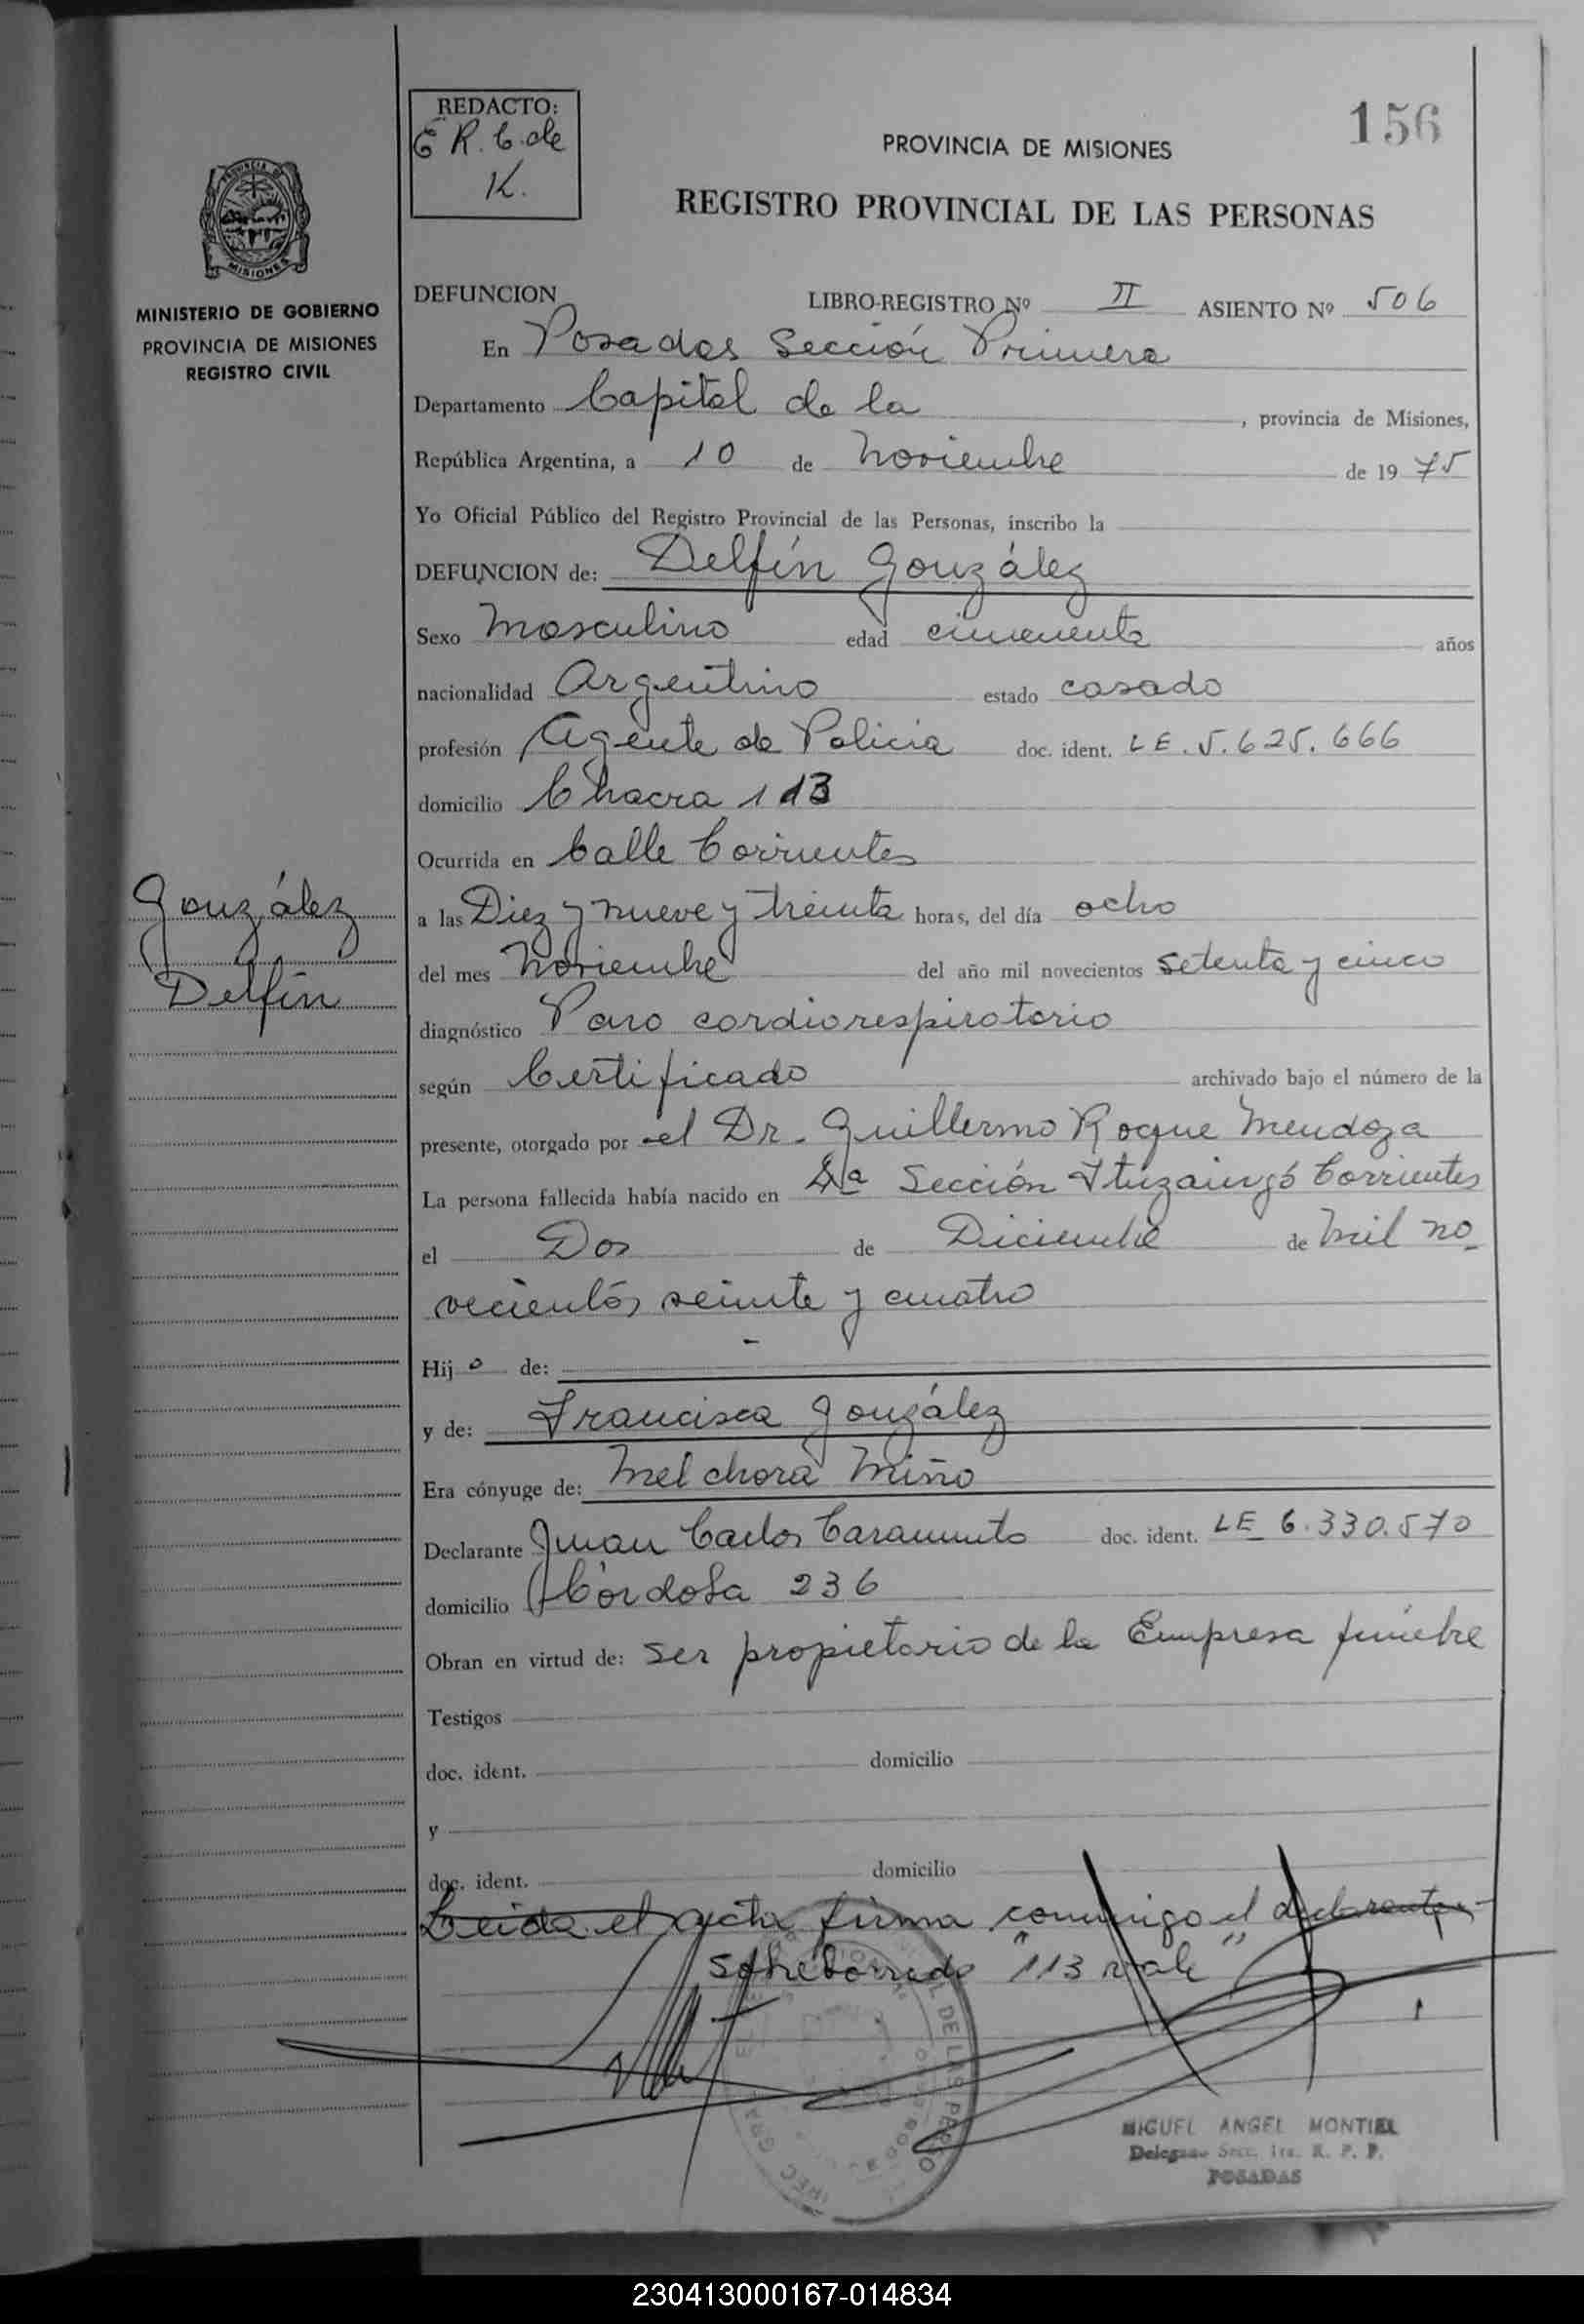 156
REDACTO:
E R. C. de
K.
PROVINCIA DE MISIONES
REGISTRO PROVINCIAL DE LAS PERSONAS
MINISTERIO DE GOBIERNO
PROVINCIA DE MISIONES
REGISTRO CIVIL
DEFUNCION LIBRO-REGISTRO Nº II ASIENTO Nº 506
En Posadas Sección Primera
Departamento Capital de la , provincia de Misiones,
República Argentina, a 10 de Noviembre de 19 75
Yo Oficial Público del Registro Provincial de las Personas, inscribo la
DEFUNCION de: Delfín González
Sexo Masculino edad cincuenta años
nacionalidad Argentino estado casado
profesión Agente de Policia doc. ident. LE. 5.625.666
domicilio Chacra 113
Ocurrida en Calle Corrientes
González
Delfín
a las Diez y nueve y treinta horas, del día ocho
del mes Noviembre del año mil novecientos setenta y cinco
diagnóstico Paro cardiorespiratorio
según Certificado archivado bajo el número de la
presente, otorgado por el Dr. Guillermo Roque Mendoza
La persona fallecida había nacido en 4a Sección Ituzaingó Corrientes
el Dos de Diciembre de Mil no_
vecientos veinte y cuatro
Hij o de: -
y de: Francisca González
Era cónyuge de: Melchora Miño
Declarante Juan Carlos doc. ident. LE 6.330.570
domicilio Córdoba 236
Obran en virtud de: ser propietario de la Empresa fúnebre
Testigos
doc. ident. domicilio
y
doc. ident. domicilio
Leida el acta firma conmigo el declarante.-
Sobreborrado "113 vale"
MIGUEL ANGEL MONTIEL
Delegado Secc. 1ra. R. P. P.
POSADAS
230413000167-014834